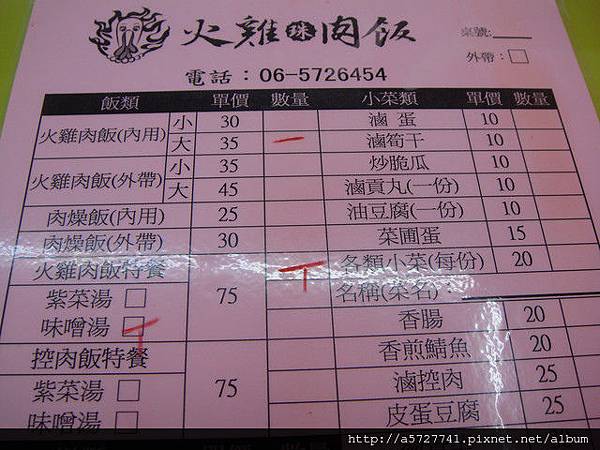 火雞珠肉飯
桌號:
外帶: □
電話：06-5726454
飯類 單價 數量 小菜類 單價 數量
火雞肉飯(內用) 小 30 滷蛋 10
大 35 一 滷筍干 10
火雞肉飯(外帶) 小 35 炒脆瓜 10
大 45 滷貢丸(一份) 10
肉燥飯(內用) 25 油豆腐(一份) 10
肉燥飯(外帶) 30 菜圃蛋 15
火雞肉飯特餐 75 各類小菜(每份) 20
紫菜湯 □ 名稱(菜名)
味噌湯 □ 香腸 20
控肉飯特餐 75 香煎鯖魚 20
紫菜湯 □ 滷控肉 25
味噌湯 □ 皮蛋豆腐 25
http://a5727741.pixnet.net/album